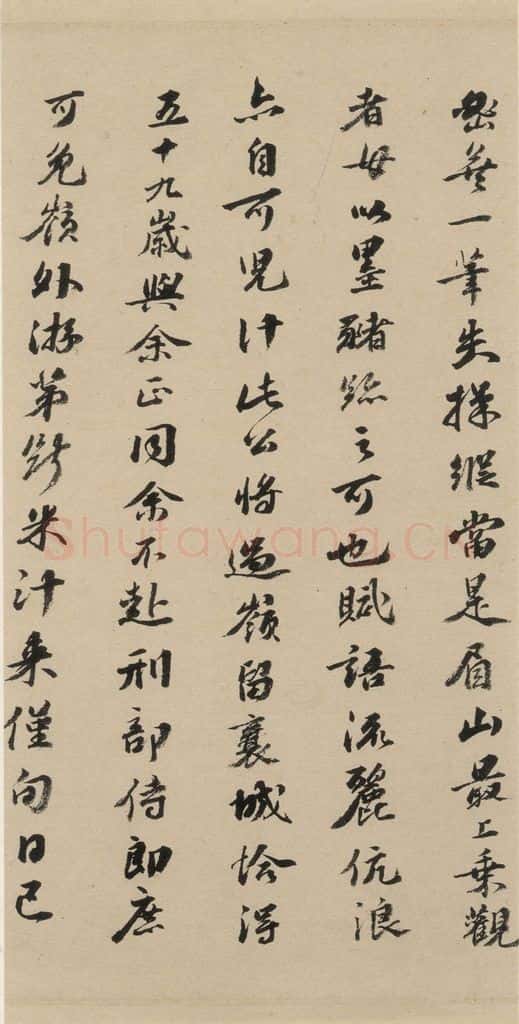 密無一筆失操縱當是眉山最上乘觀
者毋以墨豬跡之可也賦語流麗伉浪
亦自可兒計此公將過嶺留襄城恰得
五十九歲與余正同余不赴刑部侍郎庶
可免嶺外游第斷米汁來僅旬日已
Shufawang.cn